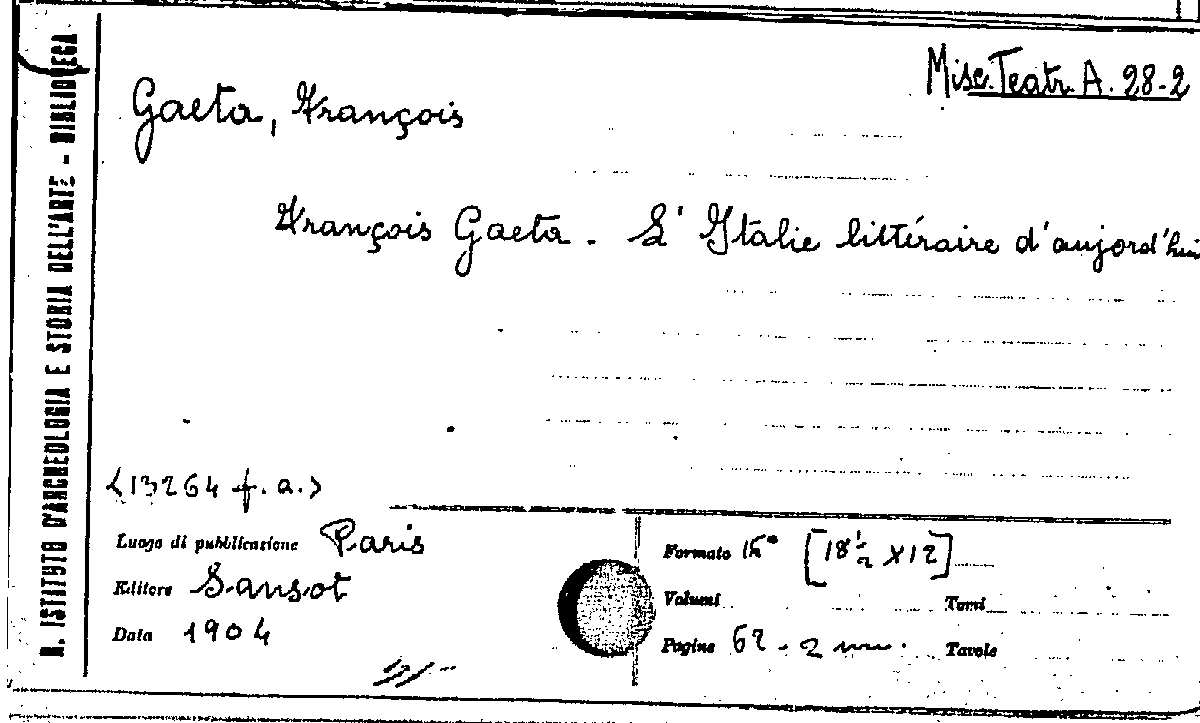 Misc. Teatr. A. 28-2
Gaeta, François
François Gaeta. L'Italie littéraire d'aujord'hui
R. ISTITUTO D'ARCHEOLOGIA E STORIA DELL'ARTE - BIBLIOTECA
<13264 f. a.>
Luogo di pubblicazione Paris
Editore Sansot
Data 1904
Formato 16° [18½ x 12]
Volumi
Tomi
Pagine 62 - 2 nn.
Tavole